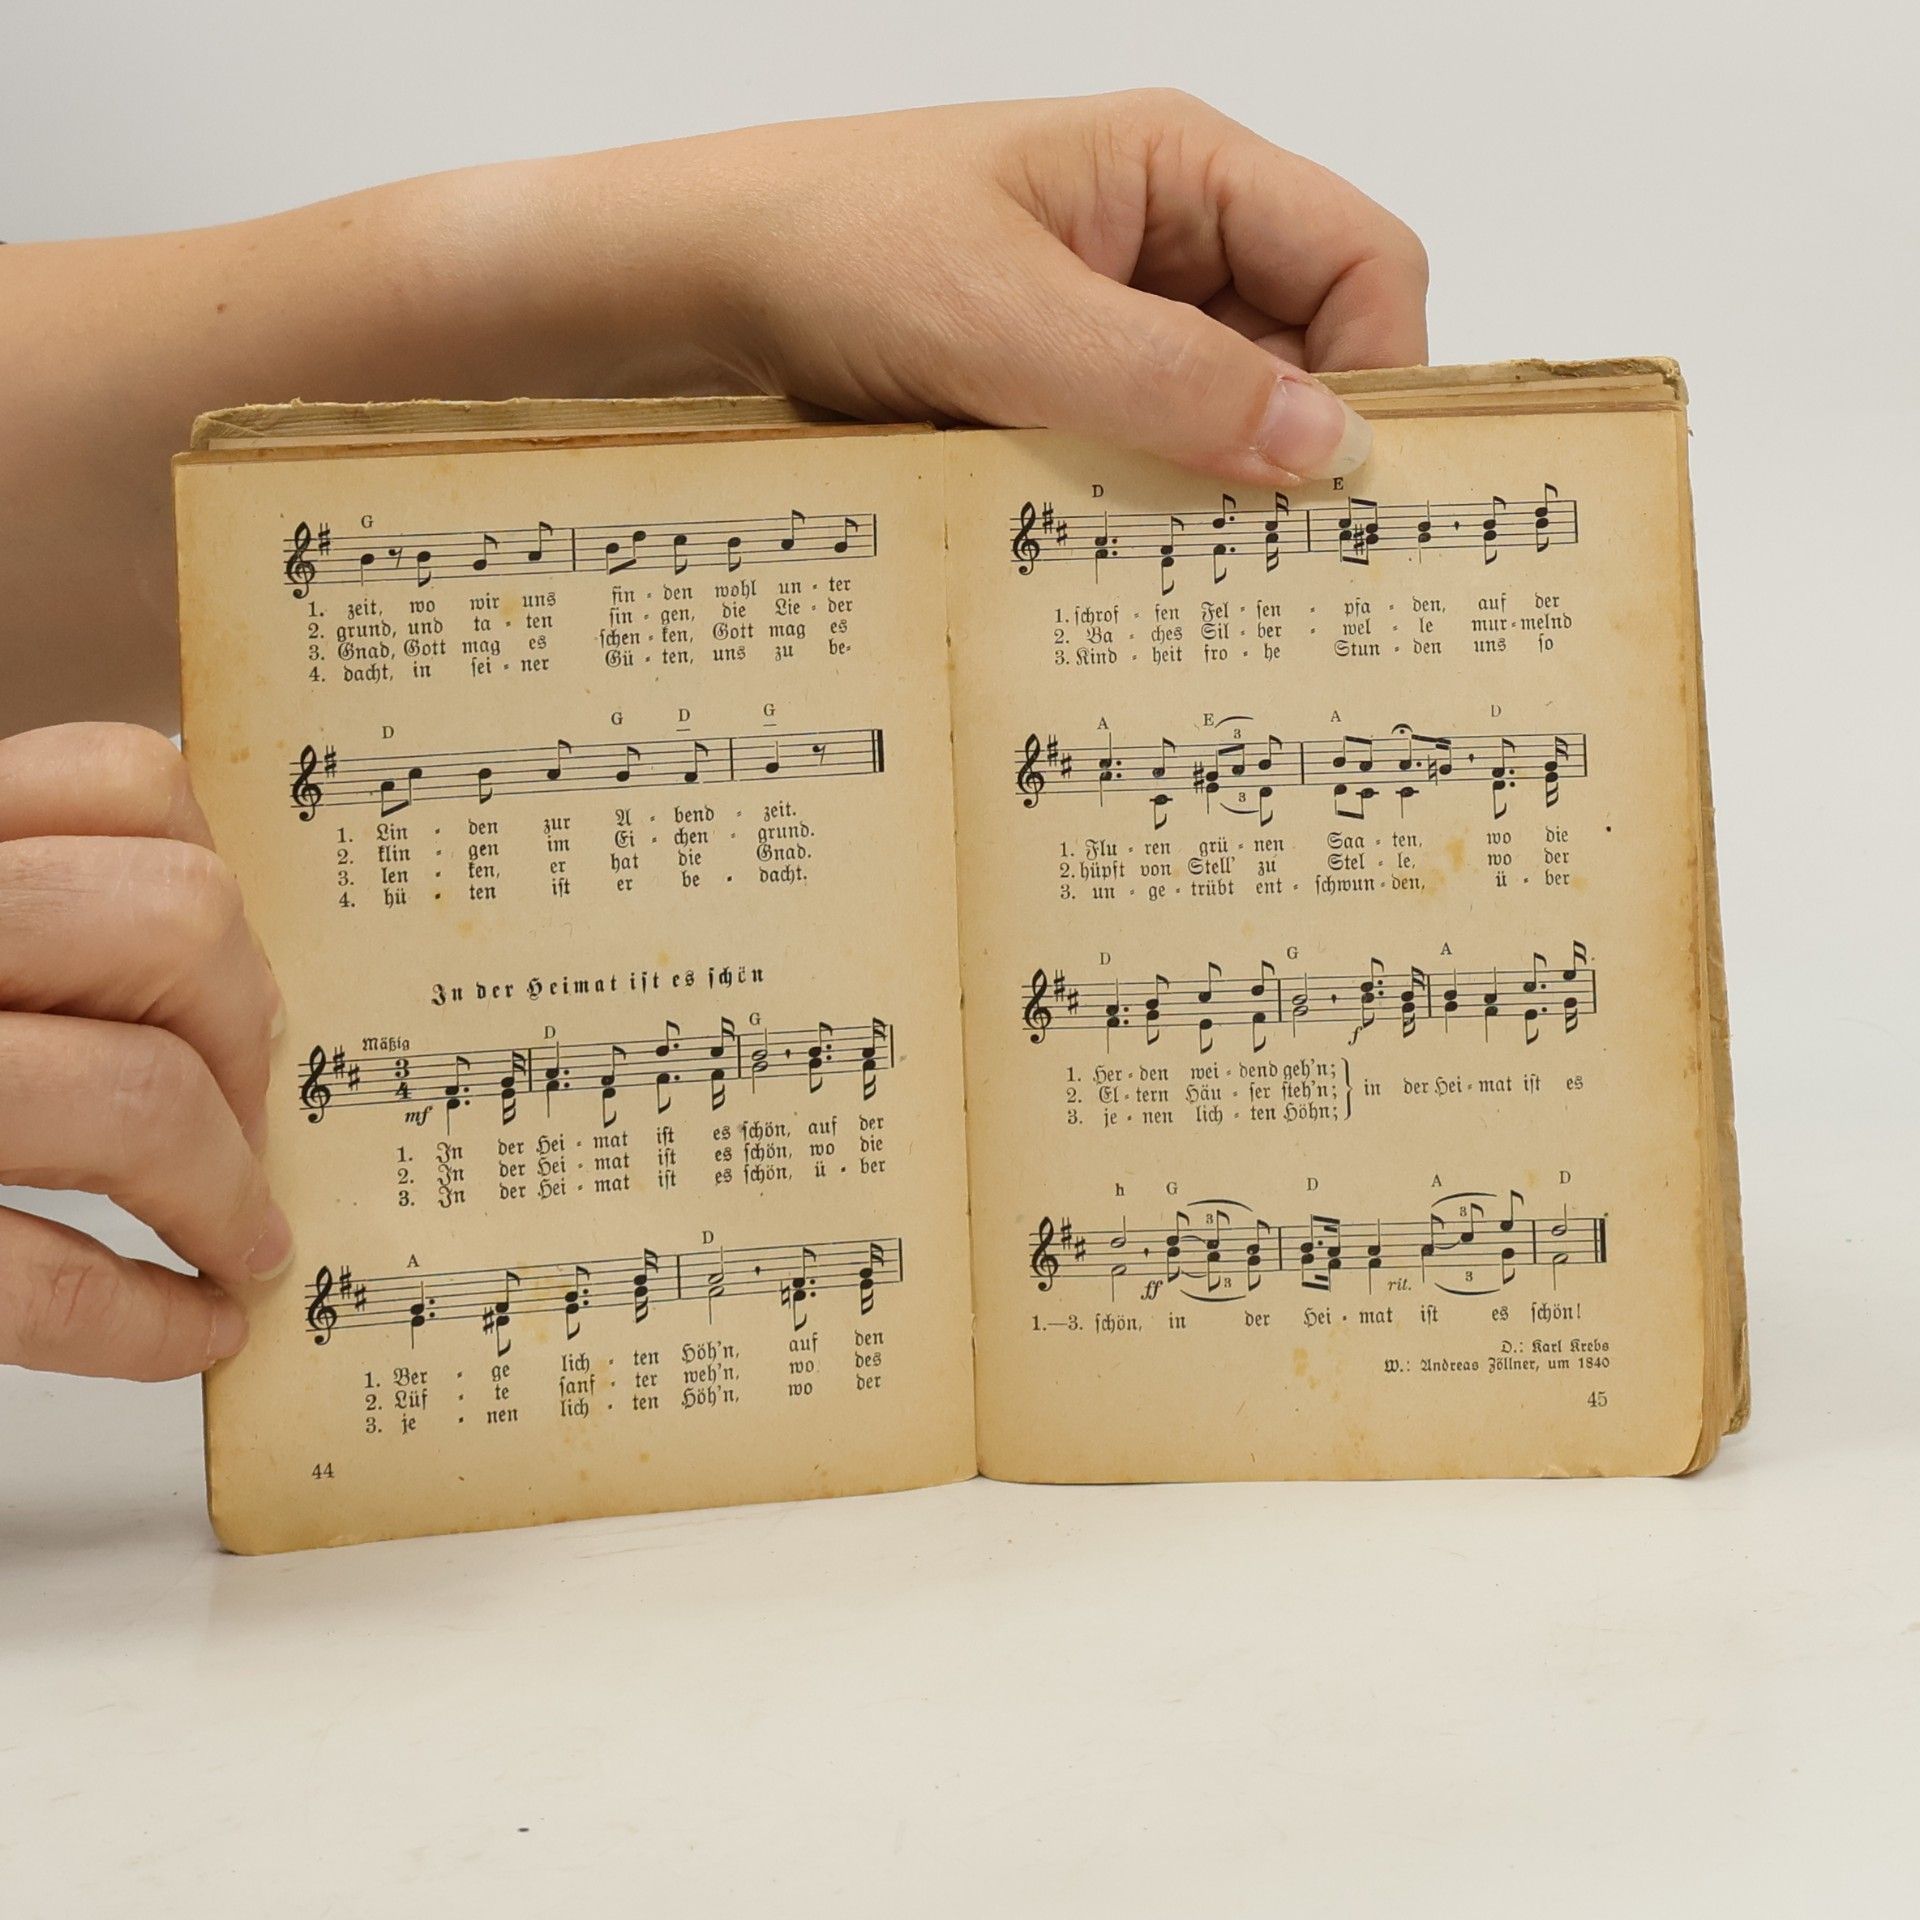 G
1. zeit, wo wir uns fin - den wohl un - ter
2. grund, und ta - ten sin - gen, die Lie - der
3. Gnad, Gott mag es schen - ken, Gott mag es
4. dacht, in sei - ner Gü - ten, uns zu be-
D G D G
1. Lin - den zur A - bend - zeit.
2. klin - gen im Ei - chen - grund.
3. len - ken, er hat die Gnad.
4. hü - ten ist er be - dacht.
In der Heimat ist es schön
Mäßig D G
3
4
mf
1. In der Hei - mat ist es schön, auf der
2. In der Hei - mat ist es schön, wo die
3. In der Hei - mat ist es schön, ü - ber
A D
1. Ber - ge lich - ten Höh'n, auf den
2. Lüf - te sanf - ter weh'n, wo des
3. je - nen lich - ten Höh'n, wo der
44
D E
1. schrof - fen Fel - sen - pfa - den, auf der
2. Ba - ches Sil - ber - wel - le mur - melnd
3. Kind - heit fro - he Stun - den uns so
A E A D
3
3
1. Flu - ren grü - nen Saa - ten, wo die
2. hüpft von Stell' zu Stel - le, wo der
3. un - ge - trübt ent - schwun - den, ü - ber
D G A
f
1. Her - den wei - dend geh'n; }
2. El - tern Häu - ser steh'n; } in der Hei - mat ist es
3. je - nen lich - ten Höhn; }
h G D A D
3 3
ff 3 rit. 3
1.—3. schön, in der Hei - mat ist es schön!
D.: Karl Krebs
W.: Andreas Zöllner, um 1840
45